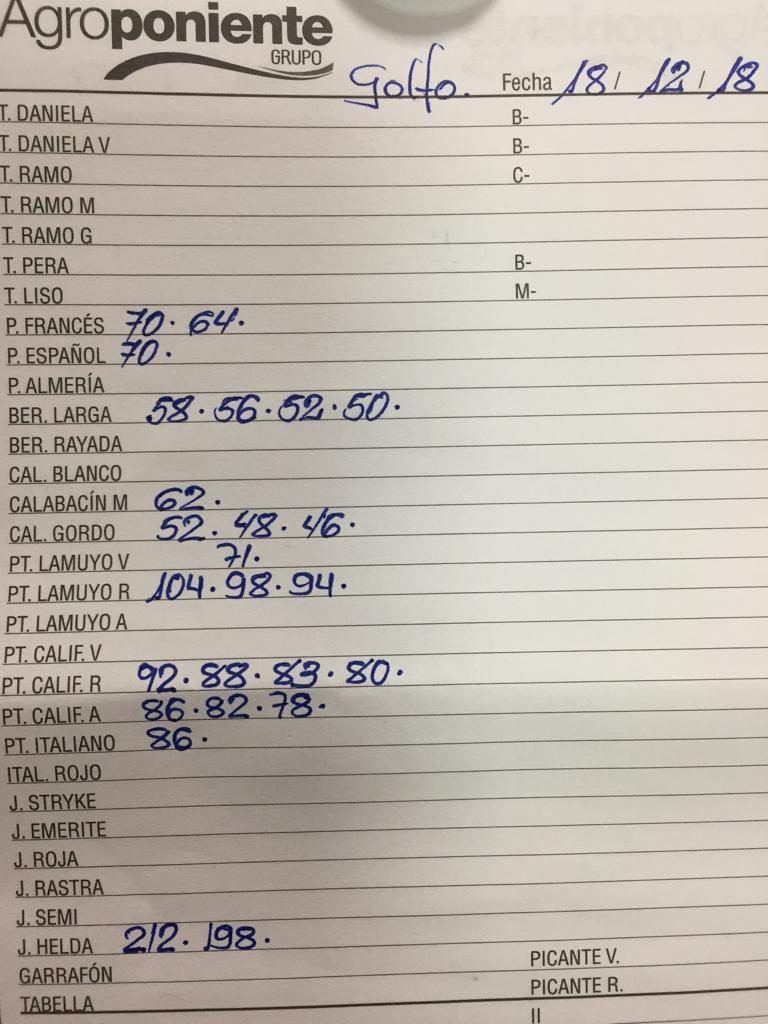 Agroponiente
GRUPO
Golfo. Fecha 18/ 12/ 18
T. DANIELA B-
T. DANIELA V B-
T. RAMO C-
T. RAMO M
T. RAMO G
T. PERA B-
T. LISO M-
P. FRANCÉS 70. 64.
P. ESPAÑOL 70.
P. ALMERÍA
BER. LARGA 58. 56. 52. 50.
BER. RAYADA
CAL. BLANCO
CALABACÍN M 62.
CAL. GORDO 52. 48. 46.
PT. LAMUYO V 71.
PT. LAMUYO R 104. 98. 94.
PT. LAMUYO A
PT. CALIF. V
PT. CALIF. R 92. 88. 83. 80.
PT. CALIF. A 86. 82. 78.
PT. ITALIANO 86.
ITAL. ROJO
J. STRYKE
J. EMERITE
J. ROJA
J. RASTRA
J. SEMI
J. HELDA 212. 198.
GARRAFÓN PICANTE V.
TABELLA PICANTE R.
II